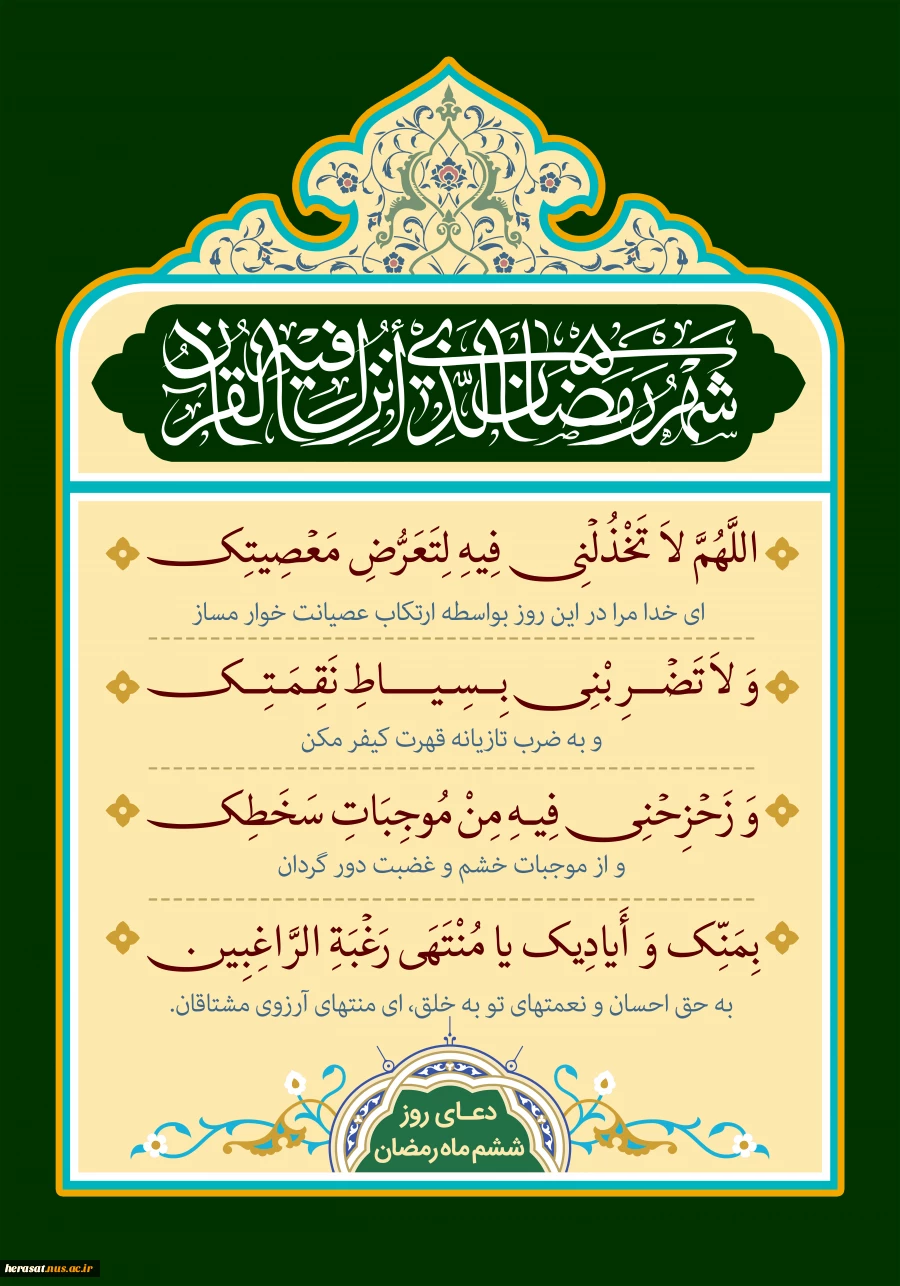 شَهْرُ رَمَضَانَ الَّذِي أُنْزِلَ فِيهِ الْقُرْآنُ
اللَّهُمَّ لاَ تَخْذُلْنِی فِیهِ لِتَعَرُّضِ مَعْصِیتِک
ای خدا مرا در این روز بواسطه ارتکاب عصیانت خوار مساز
وَ لاَ تَضْرِبْنِی بِسِیاطِ نَقِمَتِک
و به ضرب تازیانه قهرت کیفر مکن
وَ زَحْزِحْنِی فِیهِ مِنْ مُوجِبَاتِ سَخَطِک
و از موجبات خشم و غضبت دور گردان
بِمَنِّک وَ أَیادِیک یا مُنْتَهَی رَغْبَةِ الرَّاغِبِین.
به حق احسان و نعمتهای تو به خلق، ای منتهای آرزوی مشتاقان.
دعای روز
ششم ماه رمضان
herasat.nus.ac.ir